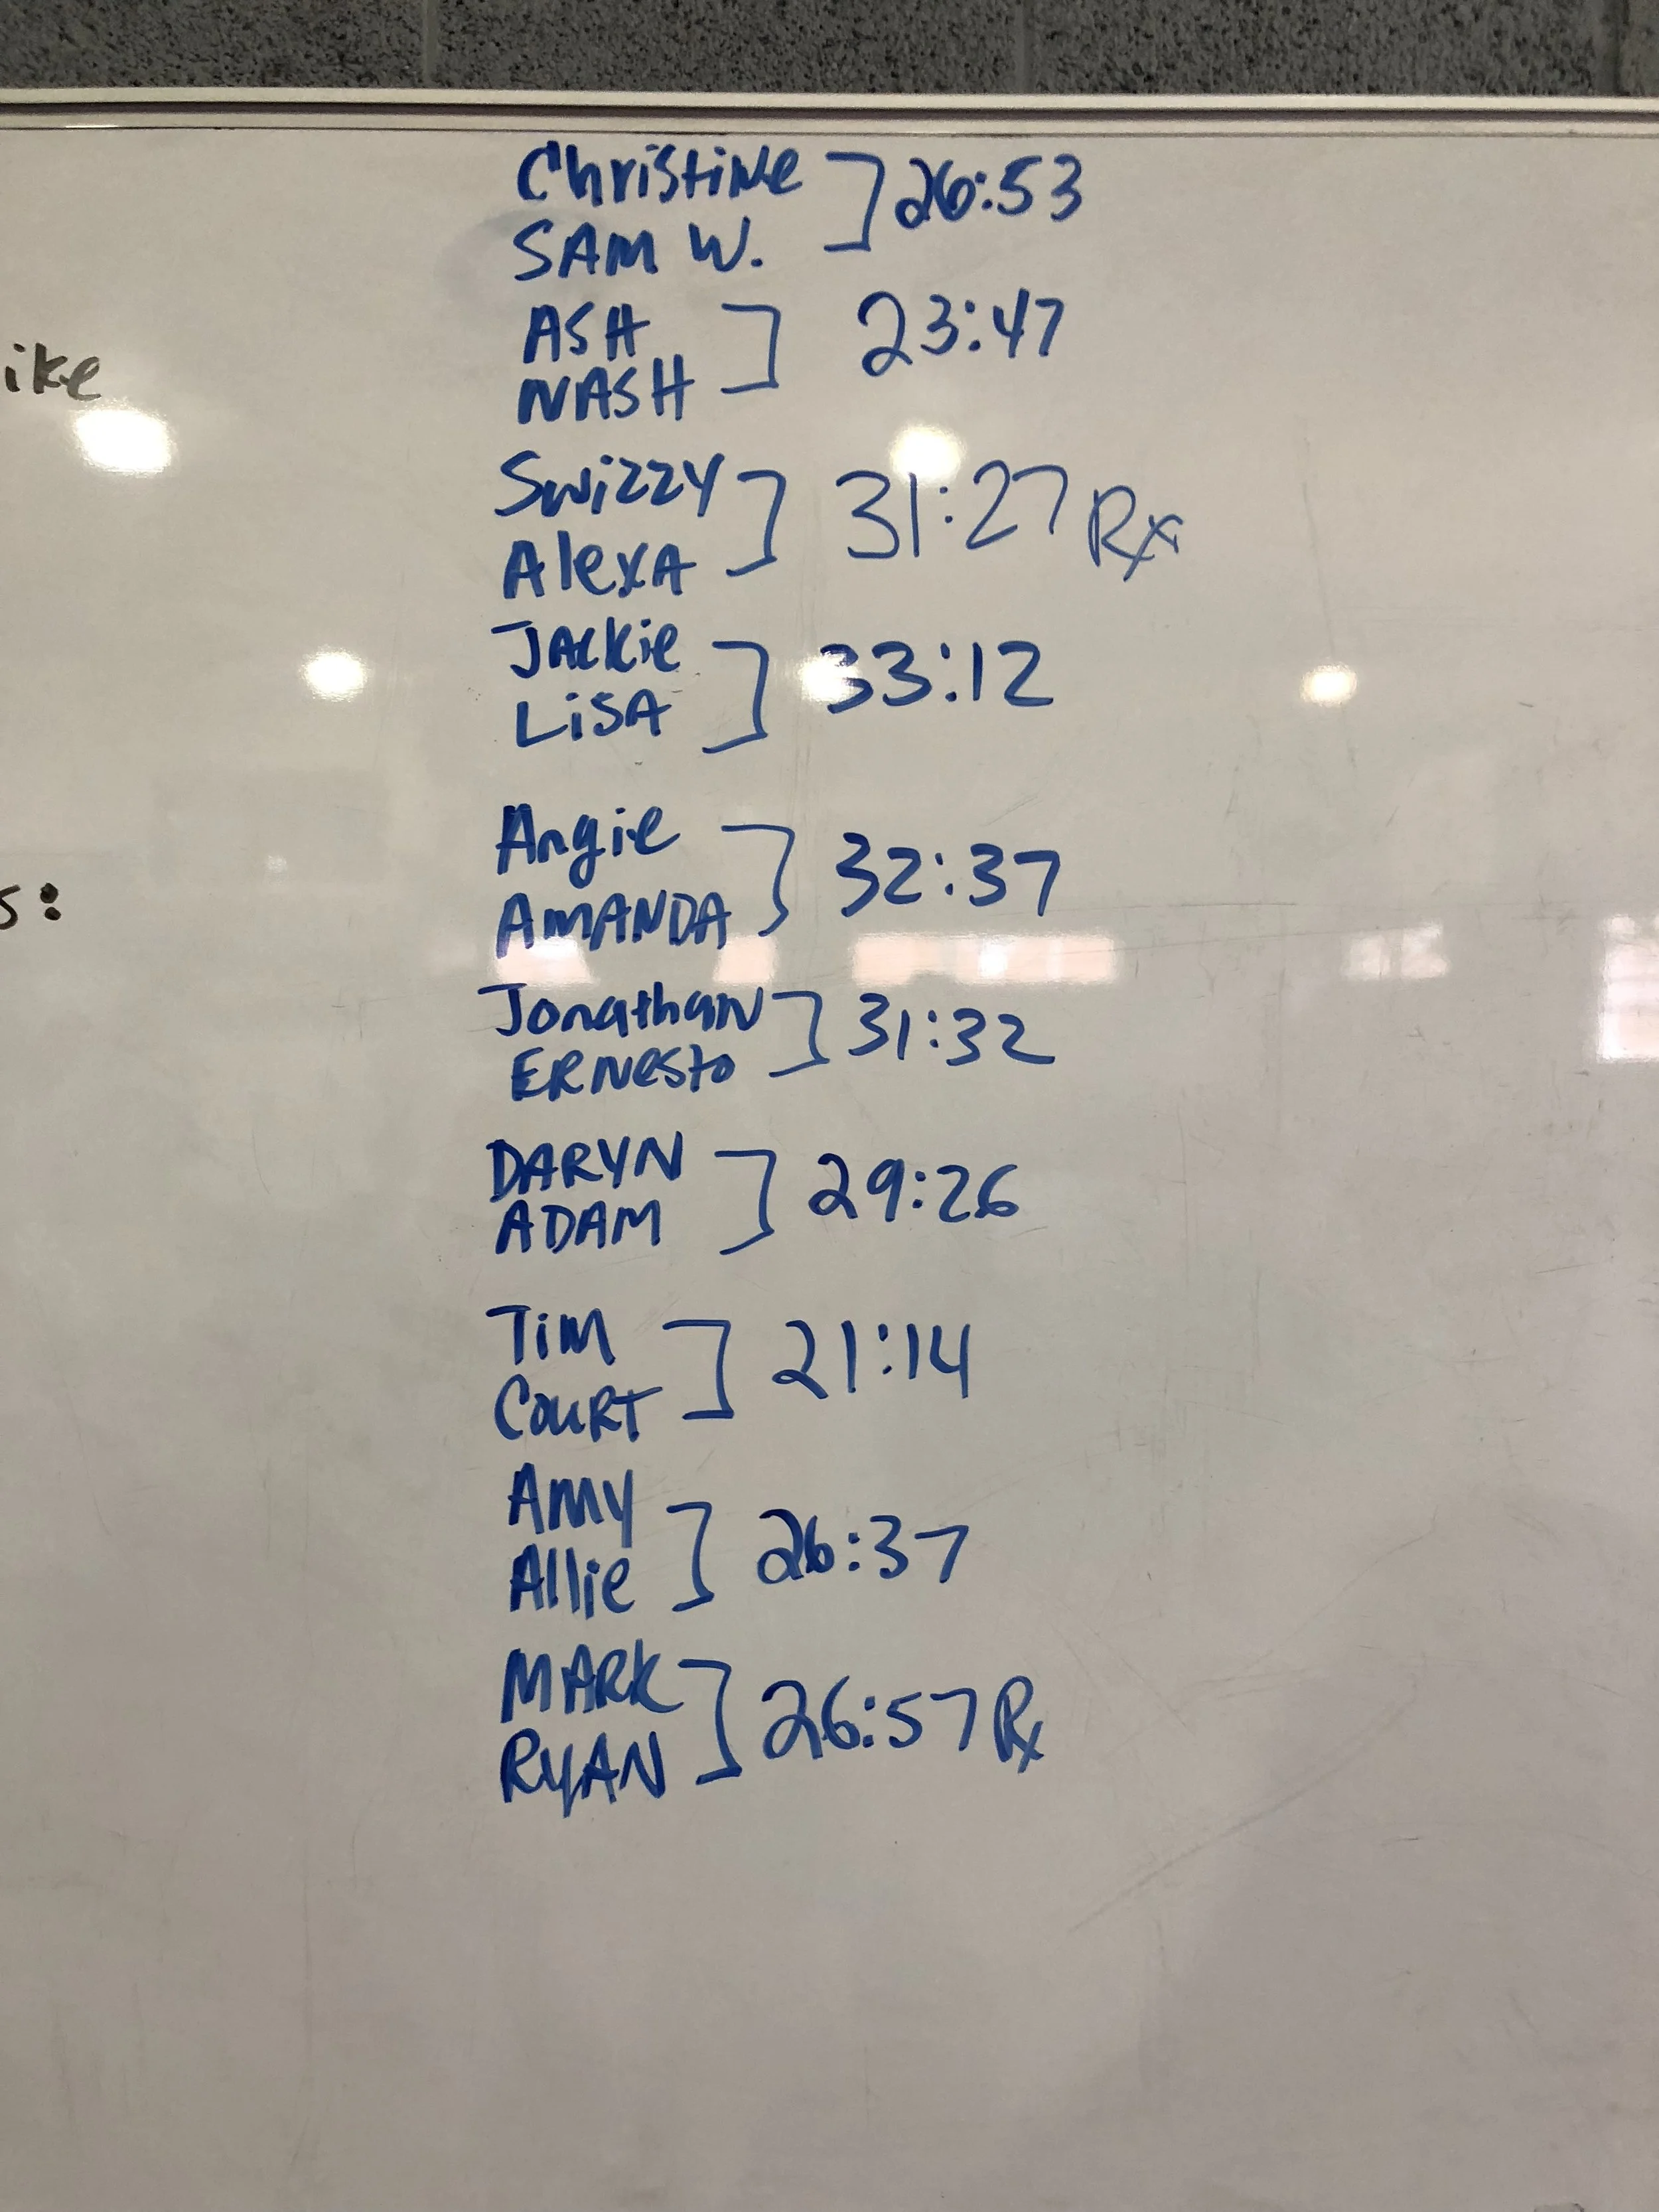 Christine
SAM W.
] 26:53
ASH
NASH
] 23:47
ike
Swizzy
Alexa
] 31:27 Rx
Jackie
LiSA
] 33:12
Angie
AMANDA
] 32:37
s:
Jonathan
ERNesto
] 31:32
DARYN
ADAM
] 29:26
Tim
COURT
] 21:14
Amy
Allie
] 26:37
MARK
RYAN
] 26:57 Rx